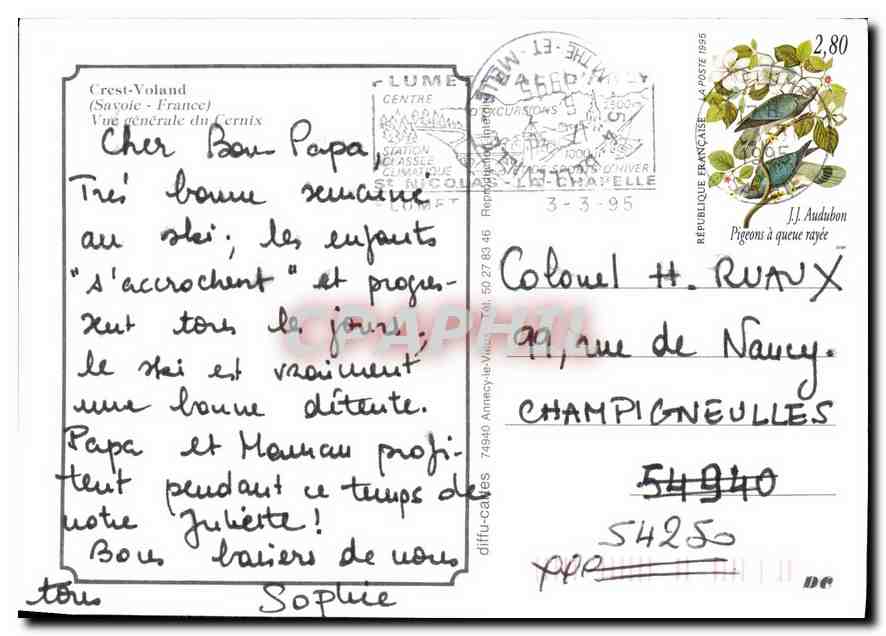 Crest-Voland
(Savoie - France)
Vue générale du Cernix
Cher Bon Papa,
Très bonne semaine
au ski ; les enfants
"s'accrochent" et progres-
sent tous les jours ;
le ski est vraiment
une bonne détente.
Papa et Maman profi-
tent pendant ce temps de
notre Juliette !
Bons baisers de nous
tous Sophie
diffu-cartes 74940 Annecy-le-Vieux Tél. 50 27 83 46 Reproduction interdite
LUMET
CENTRE
EXCURSIONS
STATION
CLASSÉE
CLIMATIQUE
SPORTS D'HIVER
ST NICOLAS-LA-CHAPELLE
LUMET
3-3-95
RÉPUBLIQUE FRANÇAISE LA POSTE 1995
2,80
J.J. Audubon
Pigeons à queue rayée
Colonel H. RUAUX
99, rue de Nancy.
CHAMPIGNEULLES
54940
54250
DC
CPAPHIL